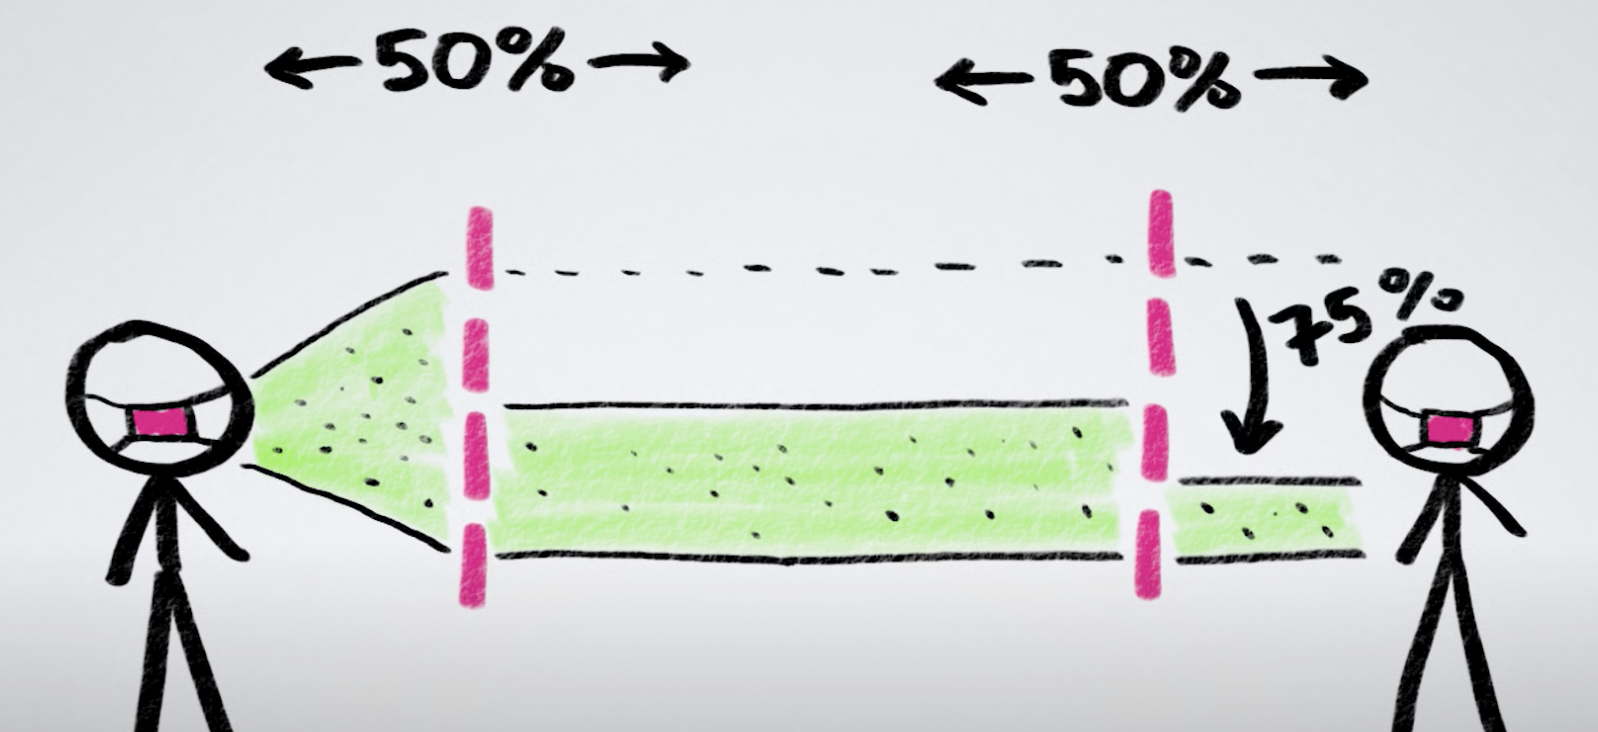 50%
50%
75%